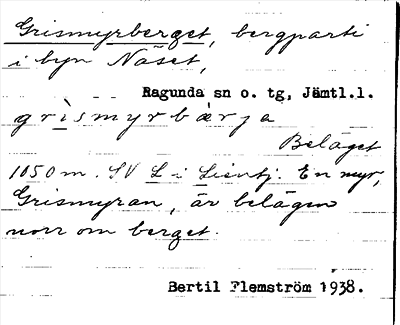 Grismyrberget, bergparti
i byn Näset,
Ragunda sn o. tg, Jämtl.l.
grìsmyrbærja
Beläget
1050 m. SV L i Lisntj. En myr,
Grismyran, är belägen
norr om berget.
Bertil Flemström 1938.